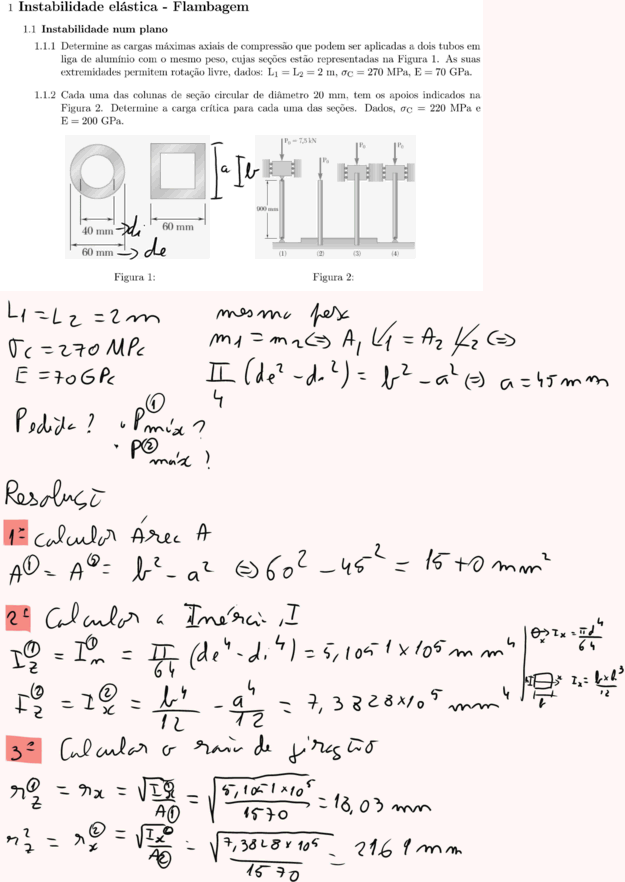 1 Instabilidade elástica - Flambagem
1.1 Instabilidade num plano
1.1.1 Determine as cargas máximas axiais de compressão que podem ser aplicadas a dois tubos em
liga de alumínio com o mesmo peso, cujas seções estão representadas na Figura 1. As suas
extremidades permitem rotação livre, dados: L₁ = L₂ = 2 m, σC = 270 MPa, E = 70 GPa.
1.1.2 Cada uma das colunas de seção circular de diâmetro 20 mm, tem os apoios indicados na
Figura 2. Determine a carga crítica para cada uma das seções. Dados, σC = 220 MPa e
E = 200 GPa.
40 mm → di
60 mm → de
60 mm
a
b
P₀ = 7,5 kN
P₀
P₀
P₀
900 mm
(1) (2) (3) (4)
Figura 1:
Figura 2:
L1 = L2 = 2m
σc = 270 MPc
E = 70 GPc
mesmo pes
m1 = m2 ⇔ A1 L1 = A2 L2 ⇔
π/4 (de² - di²) = b² - a² ⇔ a = 45 mm
Pedido? • P① máx?
• P② máx?
Resoluçõ
1º calcular Área A
A① = A② = b² - a² ⇔ 60² - 45² = 1570 mm²
2º Calcular a Inérci, I
I①z = I①n = π/64 (de⁴ - di⁴) = 5,1051 × 10⁵ mm⁴
Ix = πd⁴/64
I②z = I②x = b⁴/12 - a⁴/12 = 7,3828×10⁵ mm⁴
Ix = b×h³/12
3º Calcular o raio de giração
r①z = rx = √(Ix①/A①) = √(5,1051×10⁵/1570) = 18,03 mm
r²z = r②x = √(Ix②/A②) = √(7,3828×10⁵/1570) = 2169 mm